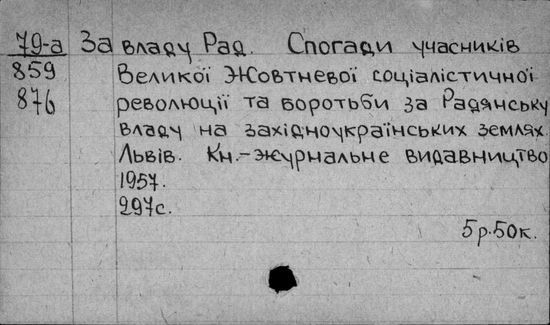 79-а За владу Рад. Спогади учасників
859 Великої Жовтневої соціалістичної
876 революції та боротьби за Радянську
владу на західноукраїнських землях.
Львів. Кн.-журнальне видавництво
1957.
297с.
5р.50к.